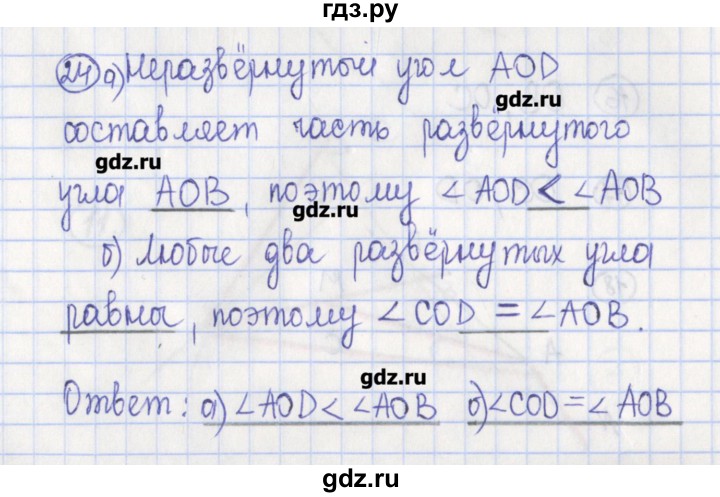 гдз.ру
24 а) Неразвёрнутый угол AOD
gdz.ru
составляет часть развёрнутого
gdz.ru
угла AOB, поэтому ∠AOD < ∠AOB
gdz.ru
б) Любые два развёрнутых угла
равны, поэтому ∠COD = ∠AOB.
gdz.ru
Ответ: а) ∠AOD < ∠AOB б) ∠COD = ∠AOB
gdz.ru